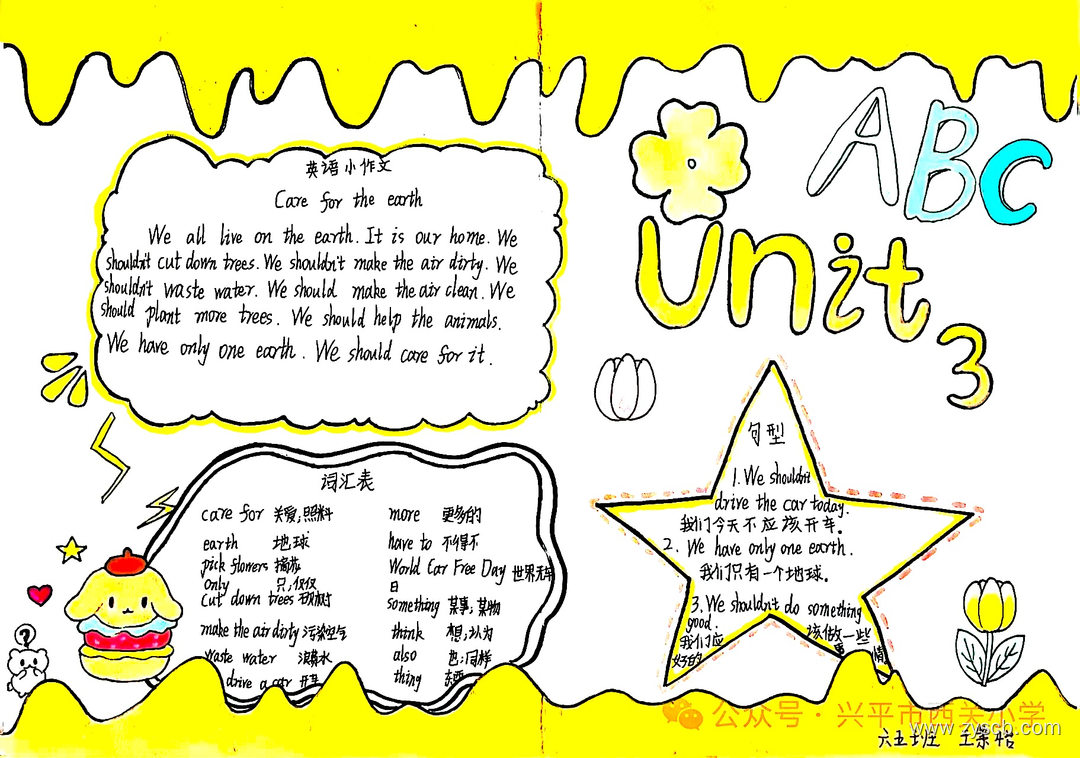 英语小作文
Care for the earth
We all live on the earth. It is our home. We
shouldn't cut down trees. We shouldn't make the air dirty. We
shouldn't waste water. We should make the air clean. We
should plant more trees. We should help the animals.
We have only one earth. We should care for it.
ABC
Unit
3
词汇表
care for 关爱;照料
earth 地球
pick flowers 摘花
only 只;仅仅
cut down trees 砍树
make the air dirty 污染空气
waste water 浪费水
drive a car 开车
more 更多的
have to 不得不
World Car Free Day 世界无车
日
something 某事;某物
think 想;认为
also 也;同样
thing 东西
句型
1. We shouldn't
drive the car today.
我们今天不应该开车。
2. We have only one earth.
我们只有一个地球。
3. We shouldn't do something
good.
我们应该做一些
好的事情
?
公众号·兴平市西关小学
www.zyscb.com
六五班 王